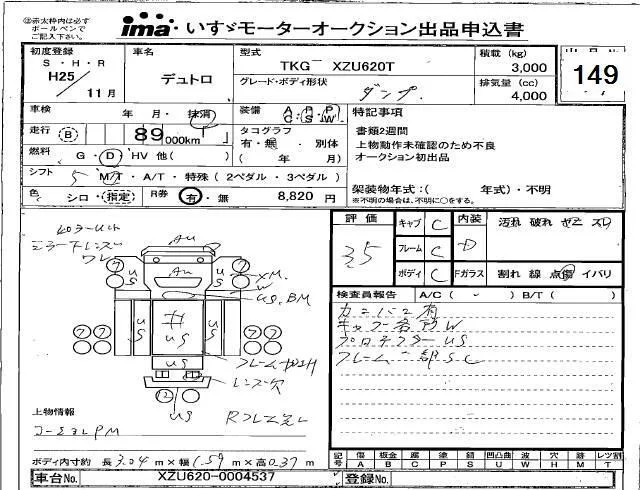 ㊟赤太枠内は必ず
ボールペンで
ご記入下さい。
ima いすゞモーターオークション出品申込書
初度登録 車名 型式 積載 (kg)
S・H・R
H25/11月 デュトロ TKG- XZU620T 3,000
グレード・ボディ形状 排気量 (cc)
ダンプ 4,000
149
車検 年 月・抹消 装備 A/C P/S P/W 特記事項
走行 B 89,000km タコグラフ 書類2週間
有・無 ・別体 上物動作未確認のため不良
燃料 G・D・HV 他( ) ( 年 月) オークション初出品
シフト 5 M/T・A/T・特殊 (2ペダル・3ペダル)
色 シロ・指定 R券 有・無 8,820 円
架装物年式:( 年式)・不明
※不明の場合は、不明に○をする。
評価 キャブ C 内装 汚れ 破れ ヤニ スレ
3.5 フレーム C D
ボディ C Fガラス 割れ 線 点傷 イバリ
検査員報告 A/C( - ) B/T( )
キャブ各所W
プロテクターUS
フレーム一部SC
AU
AU
US
US
US
US
US
US, BM
レンズ欠
US
上物情報
コーションPM
ボディ内寸約 長3.04m×幅1.59m×高0.37m
記号 傷 板金 腐 塗 錆 凹凸曲 波 穴 跡 レツ割
A B C P S U W H M T
車台No. XZU620-0004537 登録No.